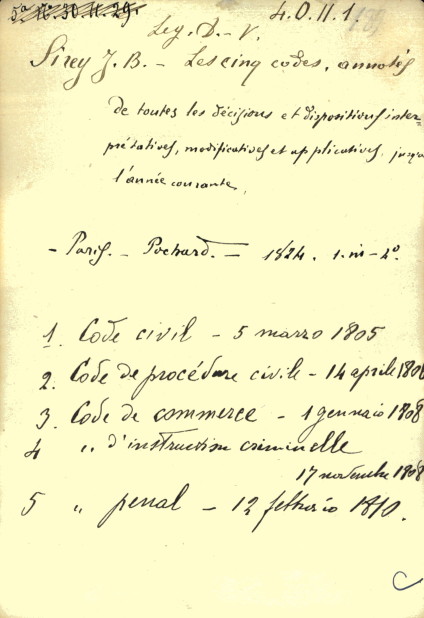 5ª Nº 30. 11. 29.
4. 0. 11. 1.
Leg. D. - V.
Sirey J. B. - Les cinq codes, annotés
de toutes les décisions et dispositives inter-
prétatives, modificatives et applicatives, jusqu'a
l'année courante,
- Paris. - Pochard. - 1824. 1. in - 2º.
1. Code civil - 5 marzo 1805
2. Code de procédure civile - 14 aprile 1806
3. Code de commerce - 1 gennaio 1808
4 " d'instruction criminelle
17 novembre 1808
5 " penal - 12 febbrio 1810.
C